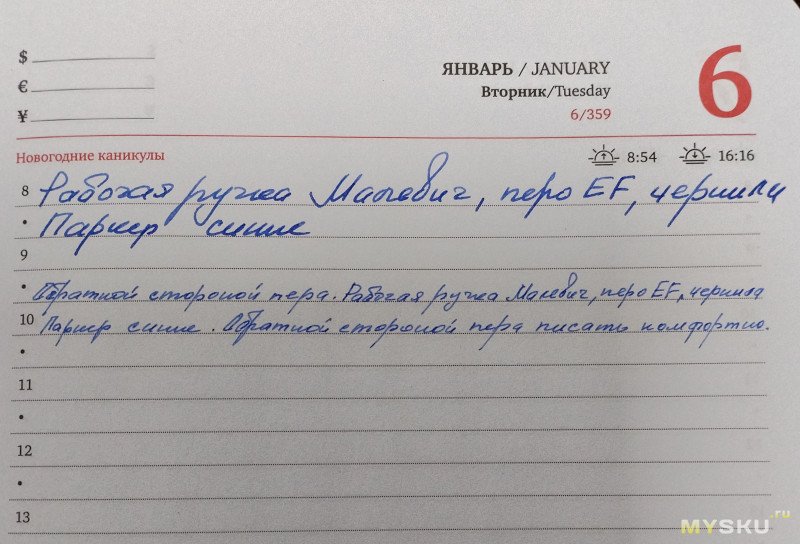 $
€
¥
ЯНВАРЬ / JANUARY
Вторник/Tuesday
6/359
6
Новогодние каникулы
8:54
16:16
8 Рабочая ручка Малевич, перо EF, чернила
Паркер синие
9
Обратной стороной пера. Рабочая ручка Малевич, перо EF, чернила
10 Паркер синие. Обратной стороной пера писать комфортно.
11
12
13
MYSKU.ru